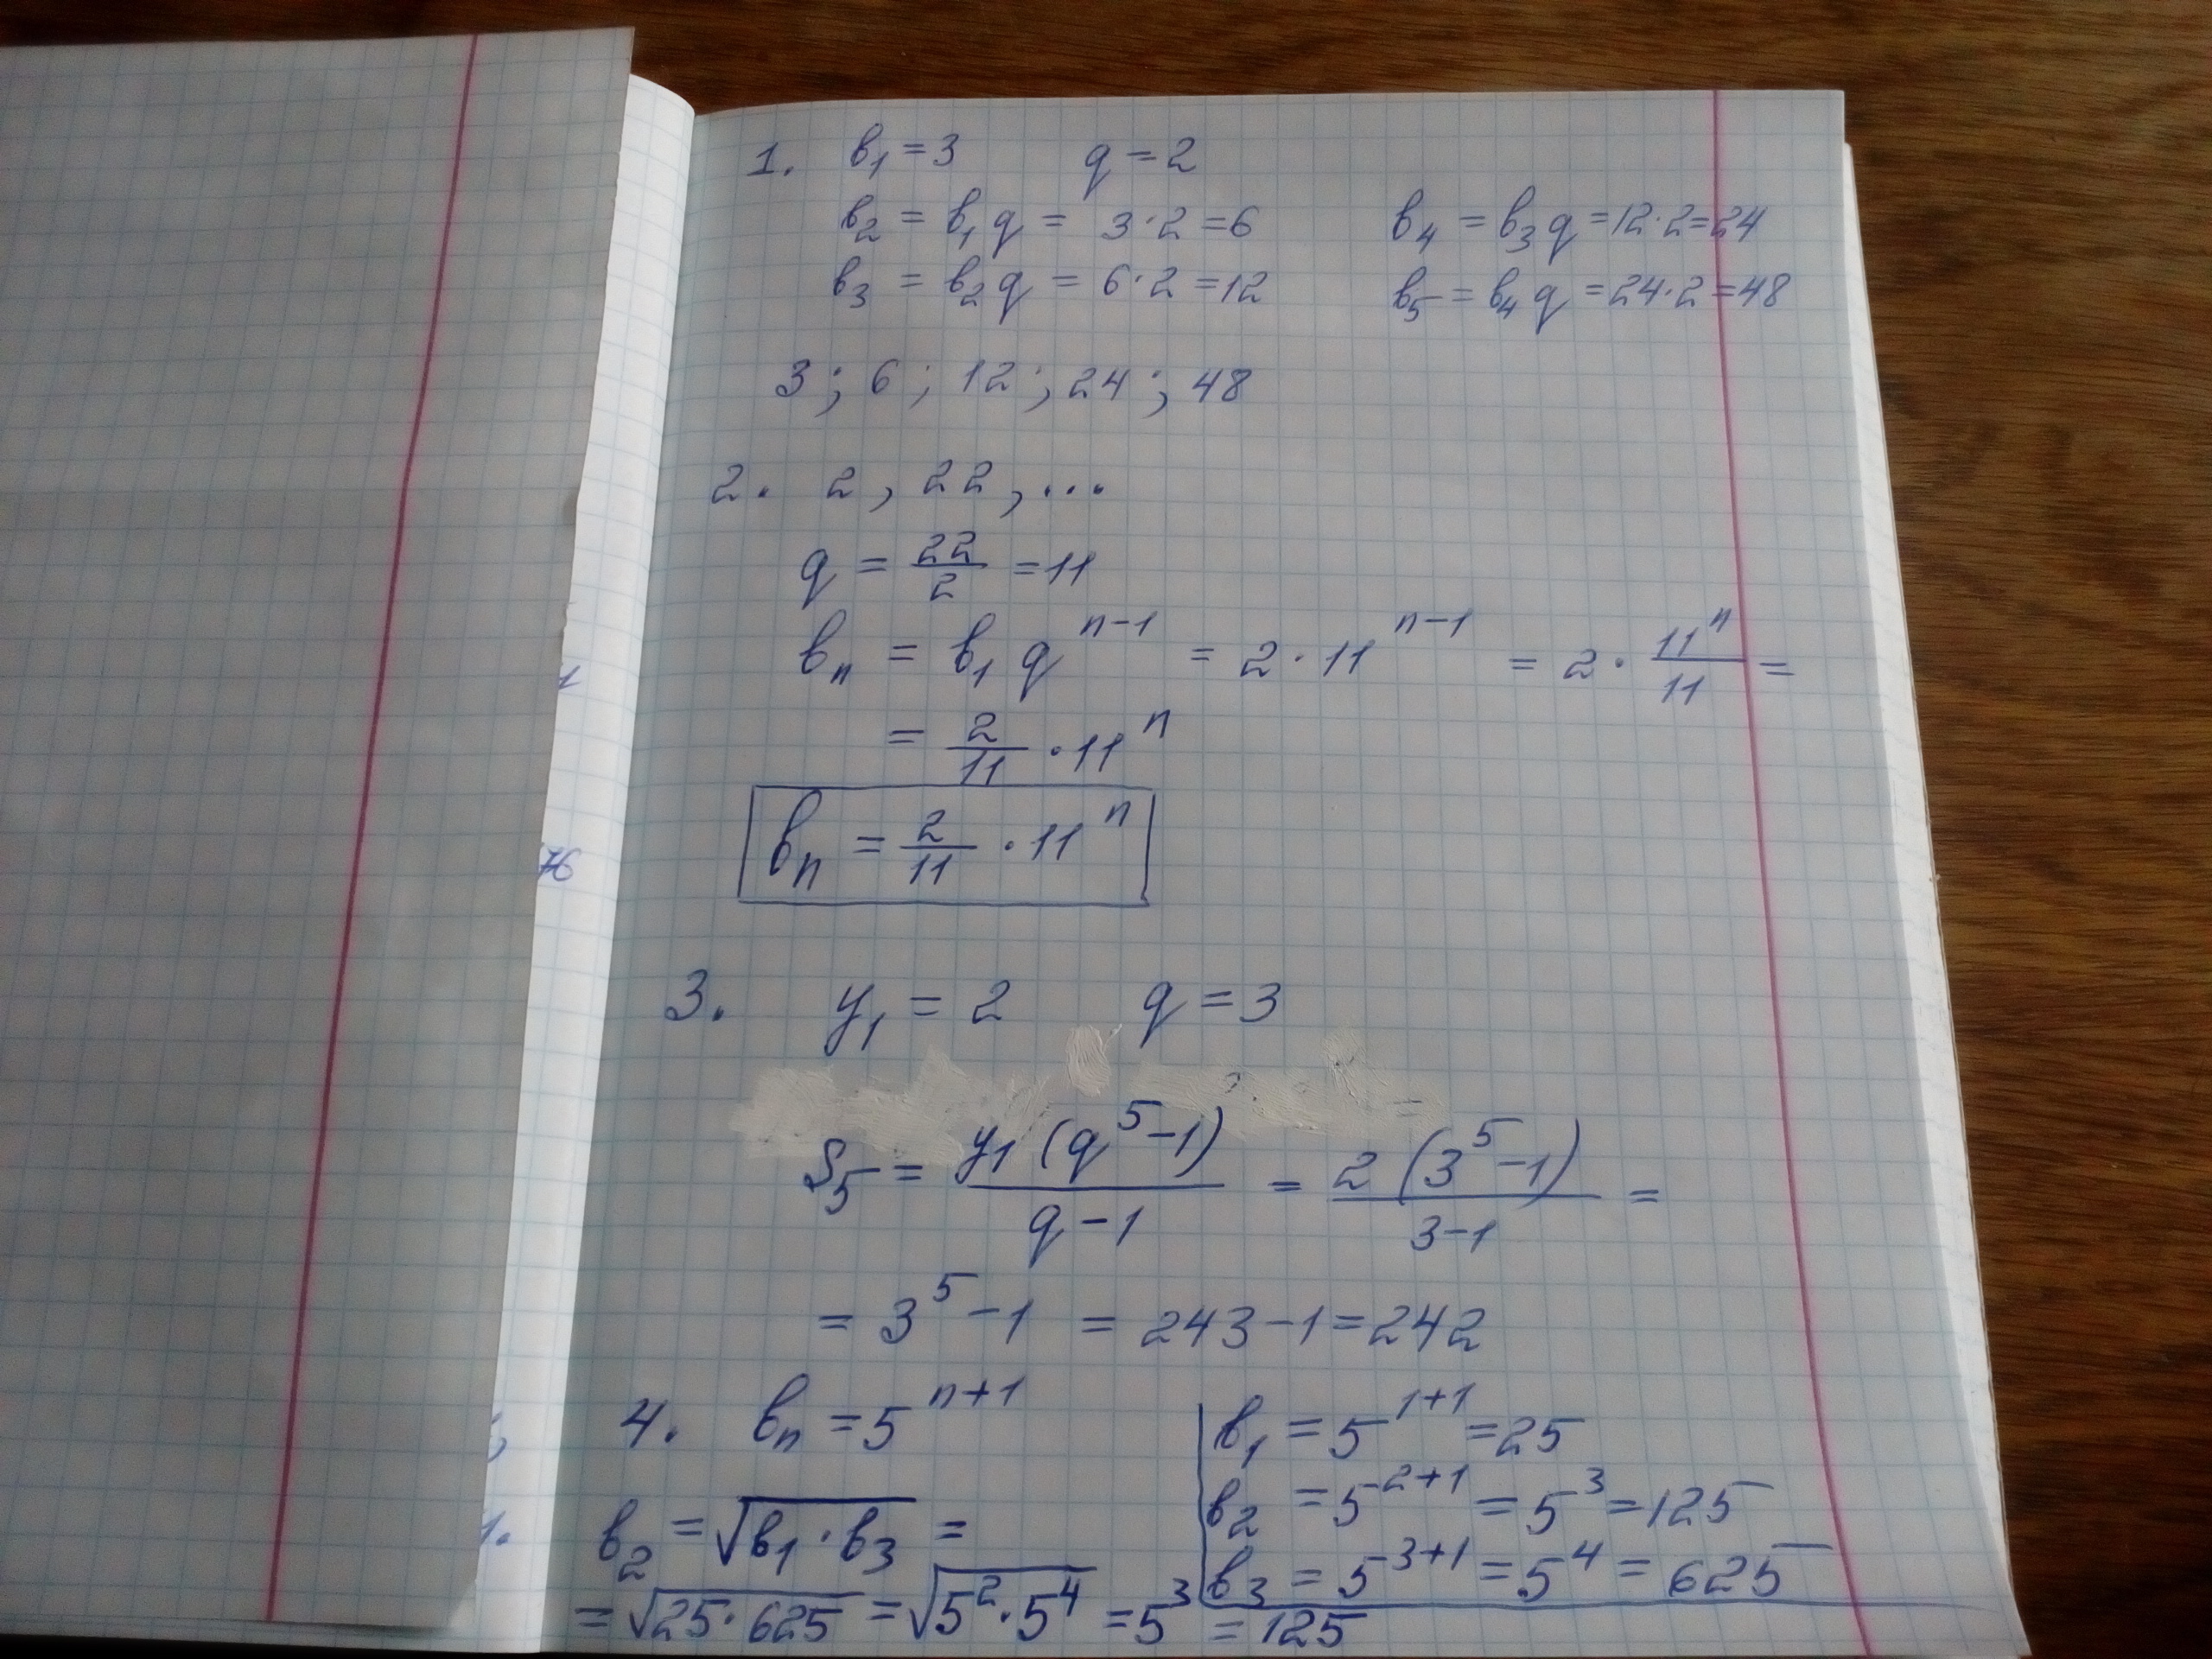 1. b₁ = 3 q = 2
b₂ = b₁ q = 3 · 2 = 6 b₄ = b₃ q = 12 · 2 = 24
b₃ = b₂ q = 6 · 2 = 12 b₅ = b₄ q = 24 · 2 = 48
3 ; 6 ; 12 ; 24 ; 48
2. 2 , 22 , ...
q = 22/2 = 11
bₙ = b₁ q^(n-1) = 2 · 11^(n-1) = 2 · 11^n/11 =
= 2/11 · 11^n
bₙ = 2/11 · 11^n
76
3. y₁ = 2 q = 3
S₅ = y₁ (q^5 - 1)/(q - 1) = 2 (3^5 - 1)/(3 - 1) =
= 3^5 - 1 = 243 - 1 = 242
4. bₙ = 5^(n+1)
b₁ = 5^(1+1) = 25
b₂ = 5^(2+1) = 5^3 = 125
b₃ = 5^(3+1) = 5^4 = 625
b₂ = √(b₁ · b₃) =
= √(25 · 625) = √(5^2 · 5^4) = 5^3 = 125